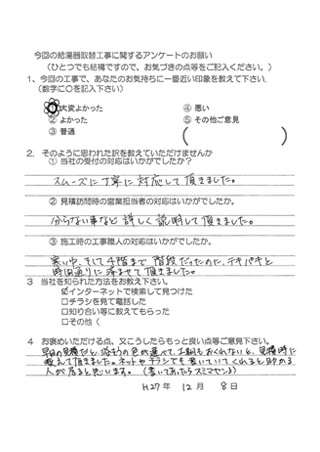 今回の給湯器取替工事に関するアンケートのお願い
(ひとつでも結構ですので、お気づきの点等をご記入ください。)
1、今回の工事で、あなたのお気持ちに一番近い印象を教えて下さい。
(数字に○を記入下さい)
① 大変よかった ④ 悪い
② よかった ⑤ その他ご意見
③ 普通 ( )
2. そのように思われた訳を教えていただけませんか
① 当社の受付の対応はいかがでしたか?
スムーズに丁寧に対応して頂きました。
② 見積訪問時の営業担当者の対応はいかがでしたか?
分らない事など詳しく説明して頂きました。
③ 施工時の工事職人の対応はいかがでしたか?
寒い中、そして4階まで階段だったのに、テキパキと
時間通りに済ませて頂きました。
3 当社を知られた方法をお教え下さい。
☑インターネットで検索して見つけた
□チラシを見て電話した
□知り合い等に教えてもらった
□その他(
4 お褒めいただける点、又こうしたらもっと良い点等ご意見下さい。
早目の見積だと、
の色が選べて、工期もおくれないと、見積時に
教えて頂きました。ネットやチラシでも書いていてくれると助かる
人が居ると思います。(書いてあったらスミマセン)
H27年 12月 8日